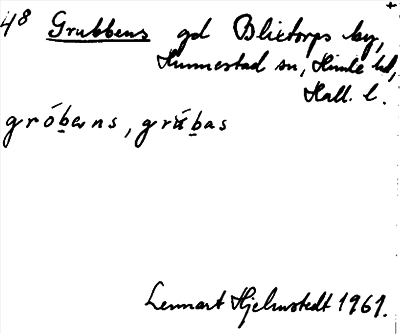 48 Grubbens gd Blixtorps by,
Hunnestad sn, Himle hd,
Hall. l.
gróbens, grúbas
Lennart Hjelmstedt 1961.